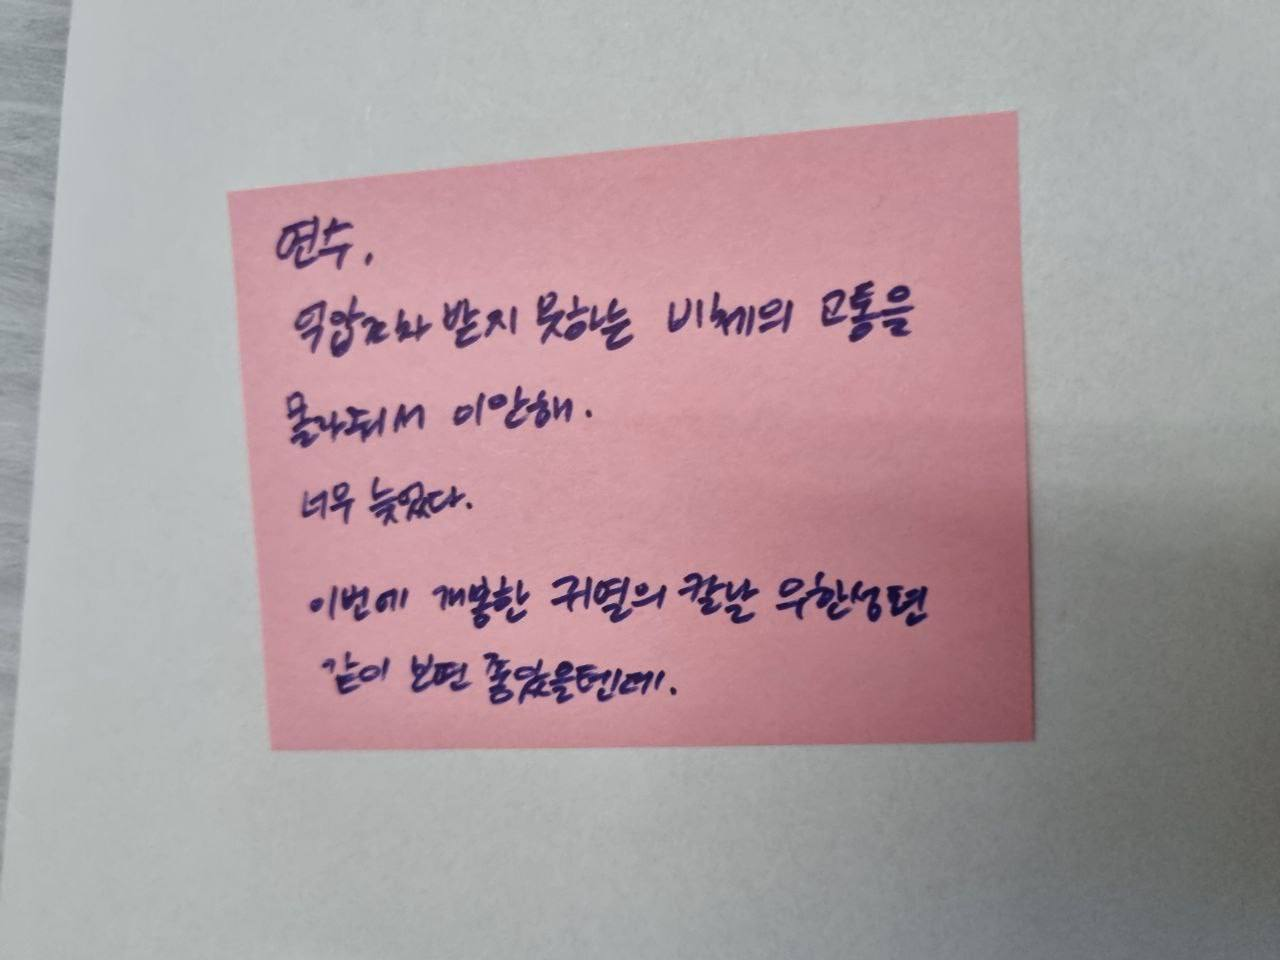 연수.
억압조차 받지 못하는 비체의 고통을
몰라줘서 미안해.
너무 늦었다.
이번에 개봉한 귀멸의 칼날 무한성편
같이 보면 좋았을텐데.